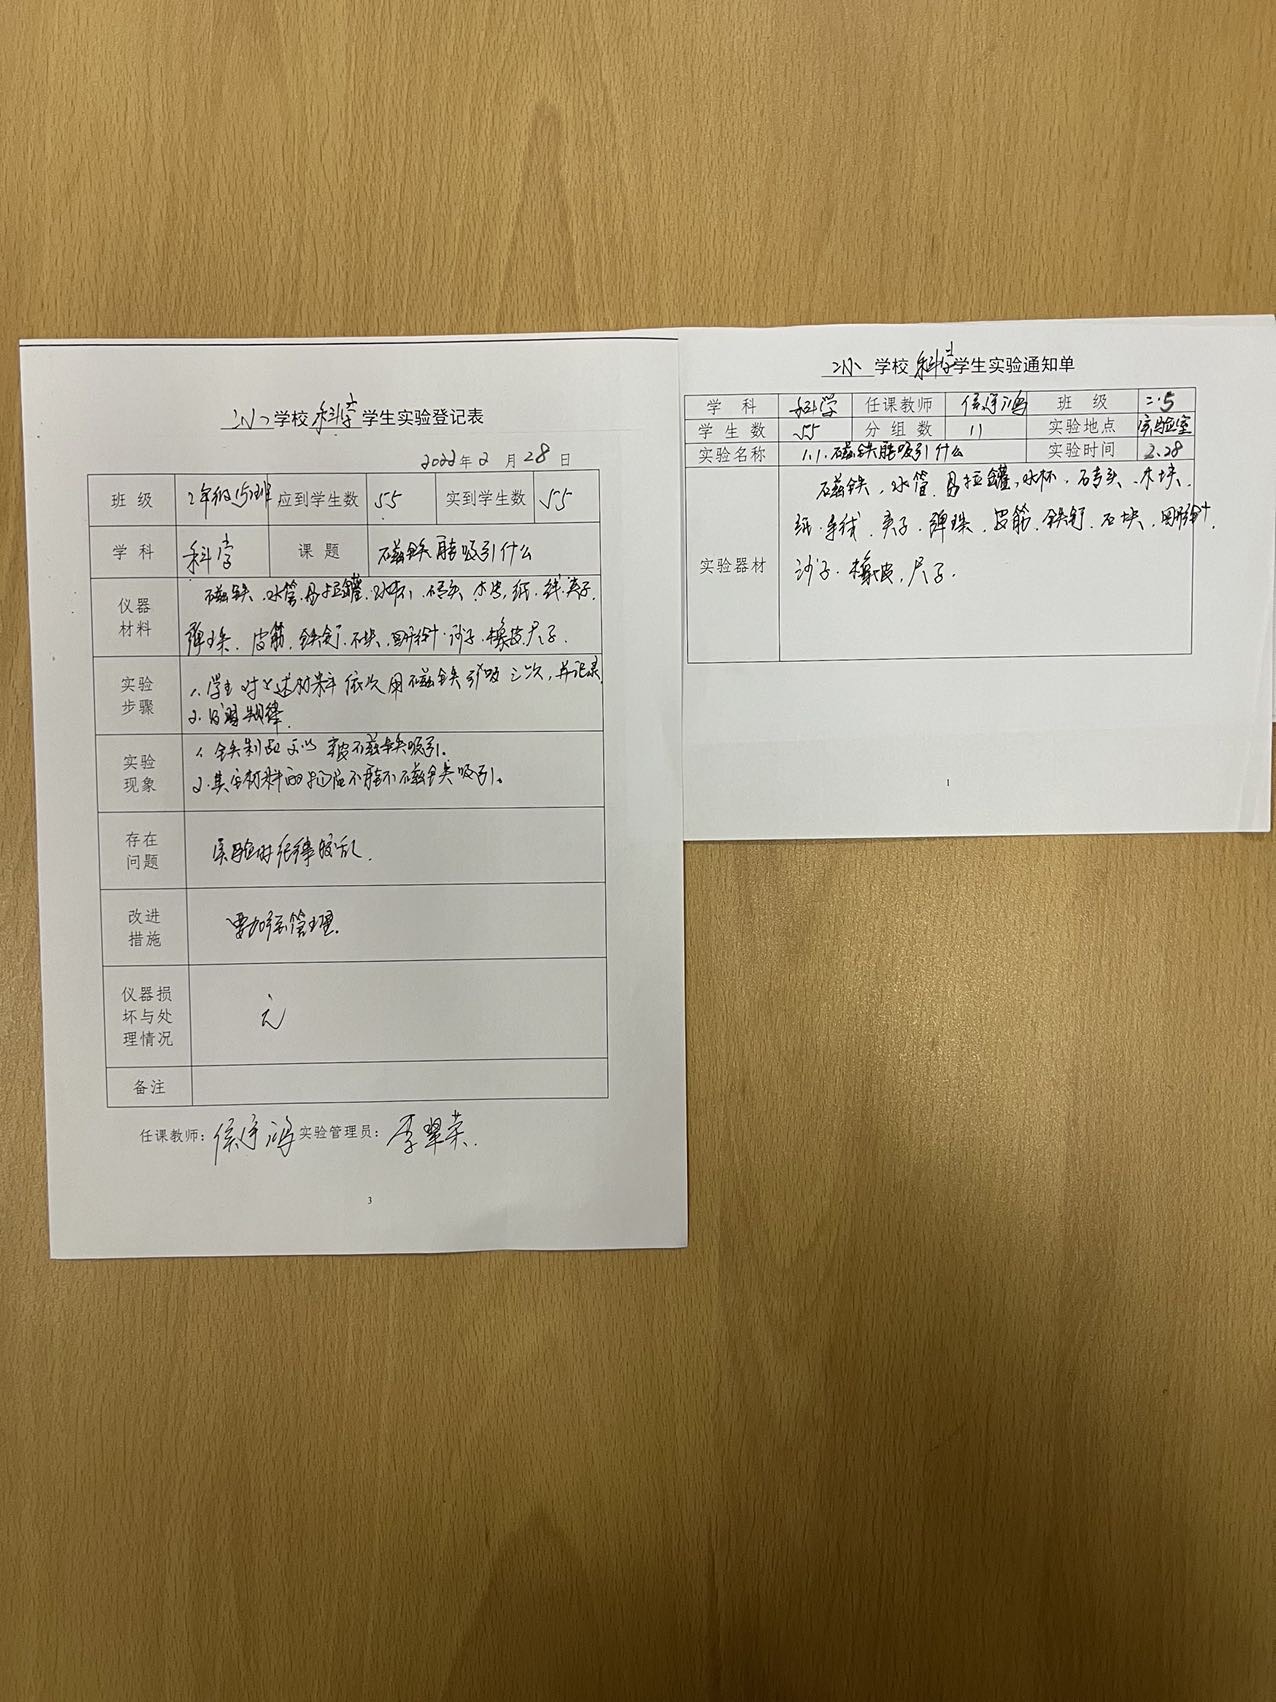 学校科学学生实验登记表
2022年2月28日
班级 2年级(5)班 应到学生数 55 实到学生数 55
学科 科学 课题 磁铁能吸引什么
仪器材料 磁铁、水管、易拉罐、水杯、砖头、木块、纸、线、夹子、
弹珠、皮筋、铁钉、石块、回形针、沙子、橡皮、尺子.
实验步骤 1.学生对上述材料依次用磁铁引吸三次,并记录
2.规律.
实验现象 1.铁制品可以被磁铁吸引.
2.其它材料的不能磁铁吸引.
存在问题 实验时纪律较乱.
改进措施 要加强管理.
仪器损坏与处理情况 无
备注
任课教师: 实验管理员: 李翠荣.
3
学校 科学学生实验通知单
学科 科学 任课教师 班级 二.5
学生数 55 分组数 11 实验地点 实验室
实验名称 1.1.磁铁能吸引什么 实验时间 2.28
实验器材 磁铁、水管、易拉罐、水杯、石专头、木块、
纸、手线、夹子、弹珠、皮筋、铁钉、石块、回形针、
沙子、橡皮、尺子.
1